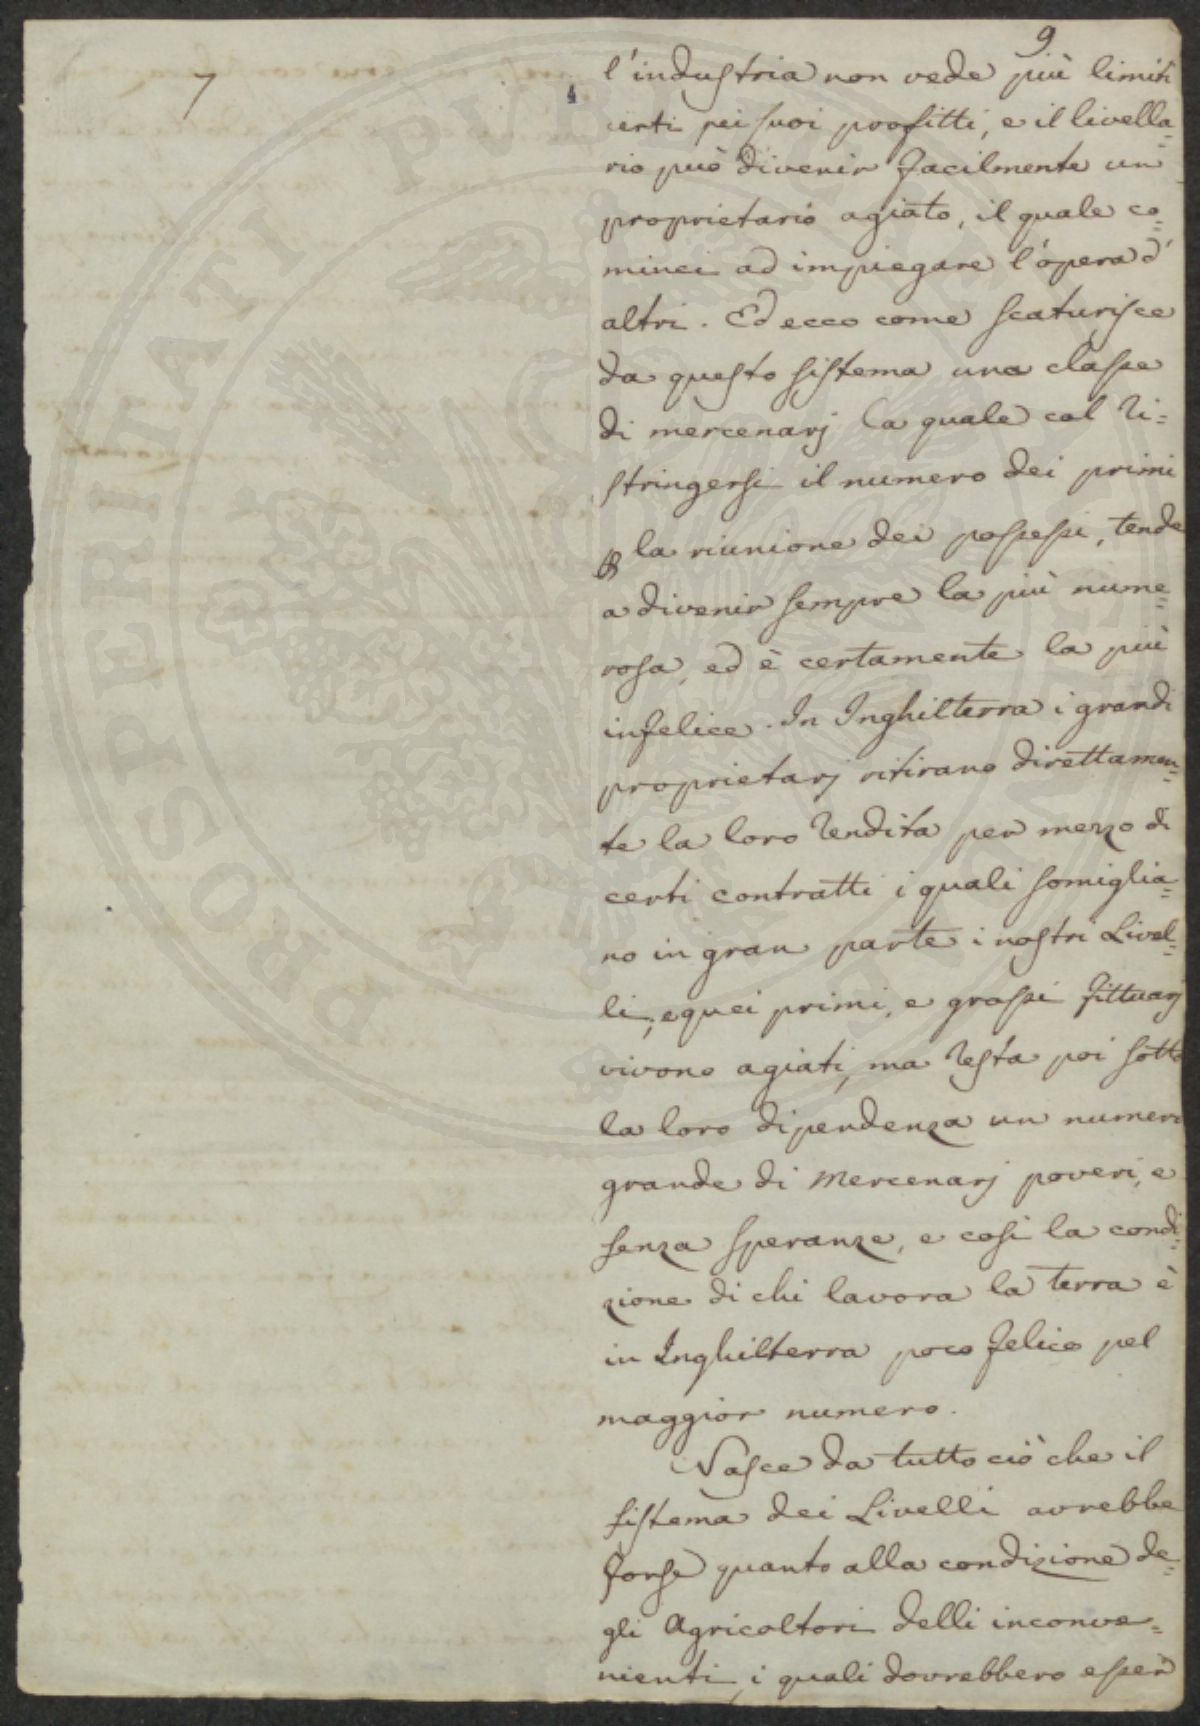 9
7
4
l'industria non vede più limiti
certi pei suoi profitti, e il livella=
rio può divenir facilmente un
proprietario agiato, il quale co=
minci ad impiegare l'opera d'
altri. Ed ecco come scaturisce
da questo sistema una classe
di mercenarj la quale col ri=
stringersi il numero dei primi
la riunione dei possessi, tende
a divenir sempre la più nume=
rosa, ed è certamente la più
infelice. In Inghilterra i grandi
proprietarj ritirano direttamen=
te la loro rendita per mezzo di
certi contratti i quali somiglia=
no in gran parte i nostri Livel=
li, e quei primi, e grossi fittuarj
vivono agiati, ma resta poi sotto
la loro dipendenza un numero
grande di Mercenarj poveri, e
senza speranze, e così la condi=
zione di chi lavora la terra è
in Inghilterra poco felice pel
maggior numero.
Nasce da tutto ciò che il
sistema dei Livelli avrebbe
forse quanto alla condizione de=
gli Agricoltori delli inconve=
nienti, i quali dovrebbero esser
PROSPERITATI PUBLICAE